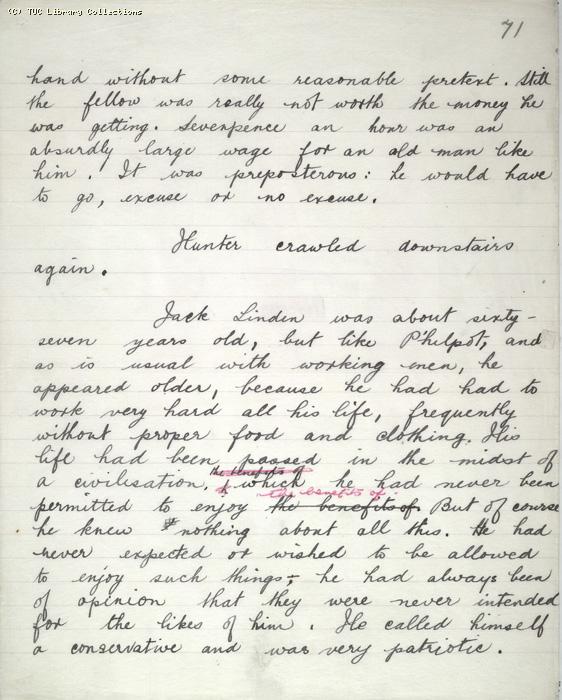 (C) TUC Library Collections
71
hand without some reasonable pretext. Still
the fellow was really not worth the money he
was getting. Sevenpence an hour was an
absurdly large wage for an old man like
him. It was preposterous: he would have
to go, excuse or no excuse.
Hunter crawled downstairs
again.
Jack Linden was about sixty-
seven years old, but like Philpot, and
as is usual with working men, he
appeared older, because he had had to
work very hard all his life, frequently
without proper food and clothing. His
life had been passed in the midst of
the benefits of
a civilisation, which he had never been
the benefits of
permitted to enjoy the benefits of. But of course
he knew nothing about all this. He had
never expected or wished to be allowed
to enjoy such things; he had always been
of opinion that they were never intended
for the likes of him. He called himself
a conservative and was very patriotic.